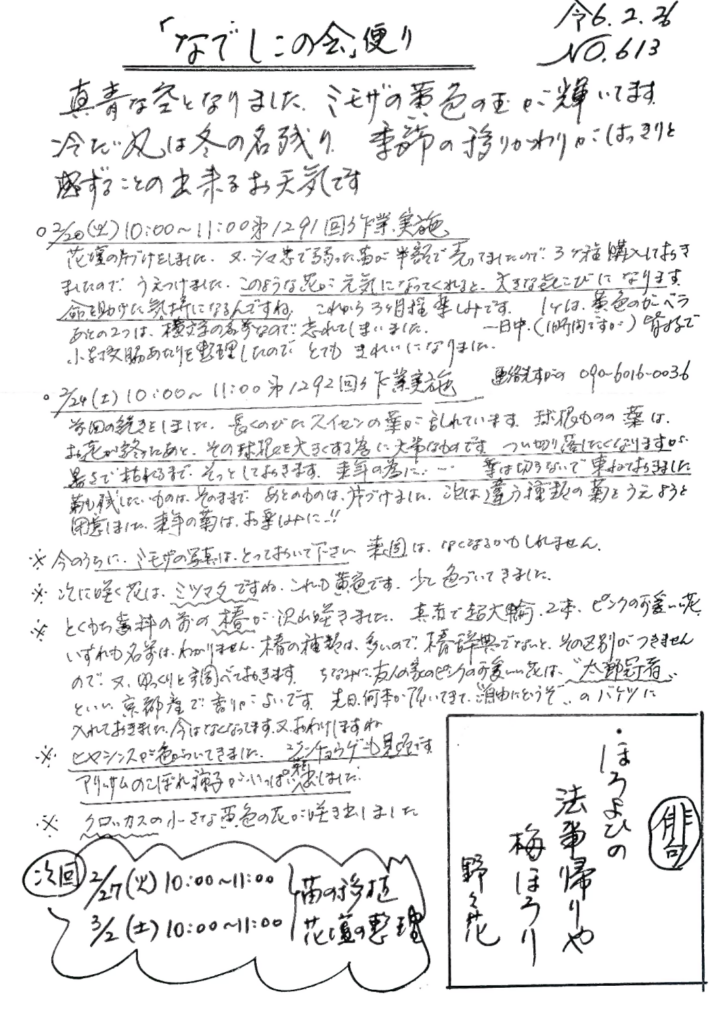 「なでしこの会」便り
令6.2.26
NO.613
真青な空となりました。ミモザの黄色の玉が輝いてます。
冷たい風は冬の名残り 季節の移りかわりがはっきりと
感ずることの出来るお天気です
○2/20(火)10:00~11:00第1291回作業実施
花壇の片づけをしました。又、で弱った苗が半額で売ってましたので、3ヶ程購入しておき
ましたので、うえつけました。このような花が元気になってくれると、大きなよろこびになります。
命を助けた気持になるんですね。これから3ヶ月程楽しみです。1ケは、黄色のガーベラ
あとの2つは、横文字の名前なので忘れてしまいました。一日中、(1時間ですが)皆まるで
脇あたりを整理したので とても きれいになりました。
○2/24(土)10:00~11:00第1292回作業実施 090-6016-0036
前回の続きをしました。長くのびたスイセンの葉が乱れています。球根ものの葉は、
お花が終ったあと、その球根を大きくする為に大事なものです つい切り落したくなりますが、
暑さで枯れるまで、そっとしておきます。来年の為に… 葉は切らないで束ねておきました
菊も残したいものは、そのまま あとのものは、片づけました。次は違う種類の菊をうえようと
用意しました。来年の菊は、お楽しみに!!
※ 今のうちに、ミモザの写真は、とっておいて下さい 来週は、なくなるかもしれません。
※ 次に咲く花は、ミツマタですね。これも黄色です。少し色づいてきました。
※ とくもち歯科の前の椿が沢山咲きました。真赤で超大輪、2本、ピンクの可愛い花
いずれも名前は、わかりません。椿の種類は、多いので、椿辞典でないと、その区別がつきません
ので、又、ゆっくりと調べておきます。ちなみに友人の家のピンクの可愛い花は、"太郎冠者"
といい、京都産で香りがよいです。先日、何本か頂いてきて、"ご自由にどうぞ"のバケツに
入れておきました。今はなくなってます。又、おわけしますね
※ ヒヤシンスが色づいてきました。ジンチョウゲも見頃です
アリッサムのこぼれ種子がいっぱい芽出しました。
※ クロッカスの小さな黄色の花が咲き出しました
次回
2/27(火)10:00~11:00
3/2(土)10:00~11:00
苗の移植
花壇の整理
俳句
・ほろよひの
法事帰りや
梅ほろり
野々花